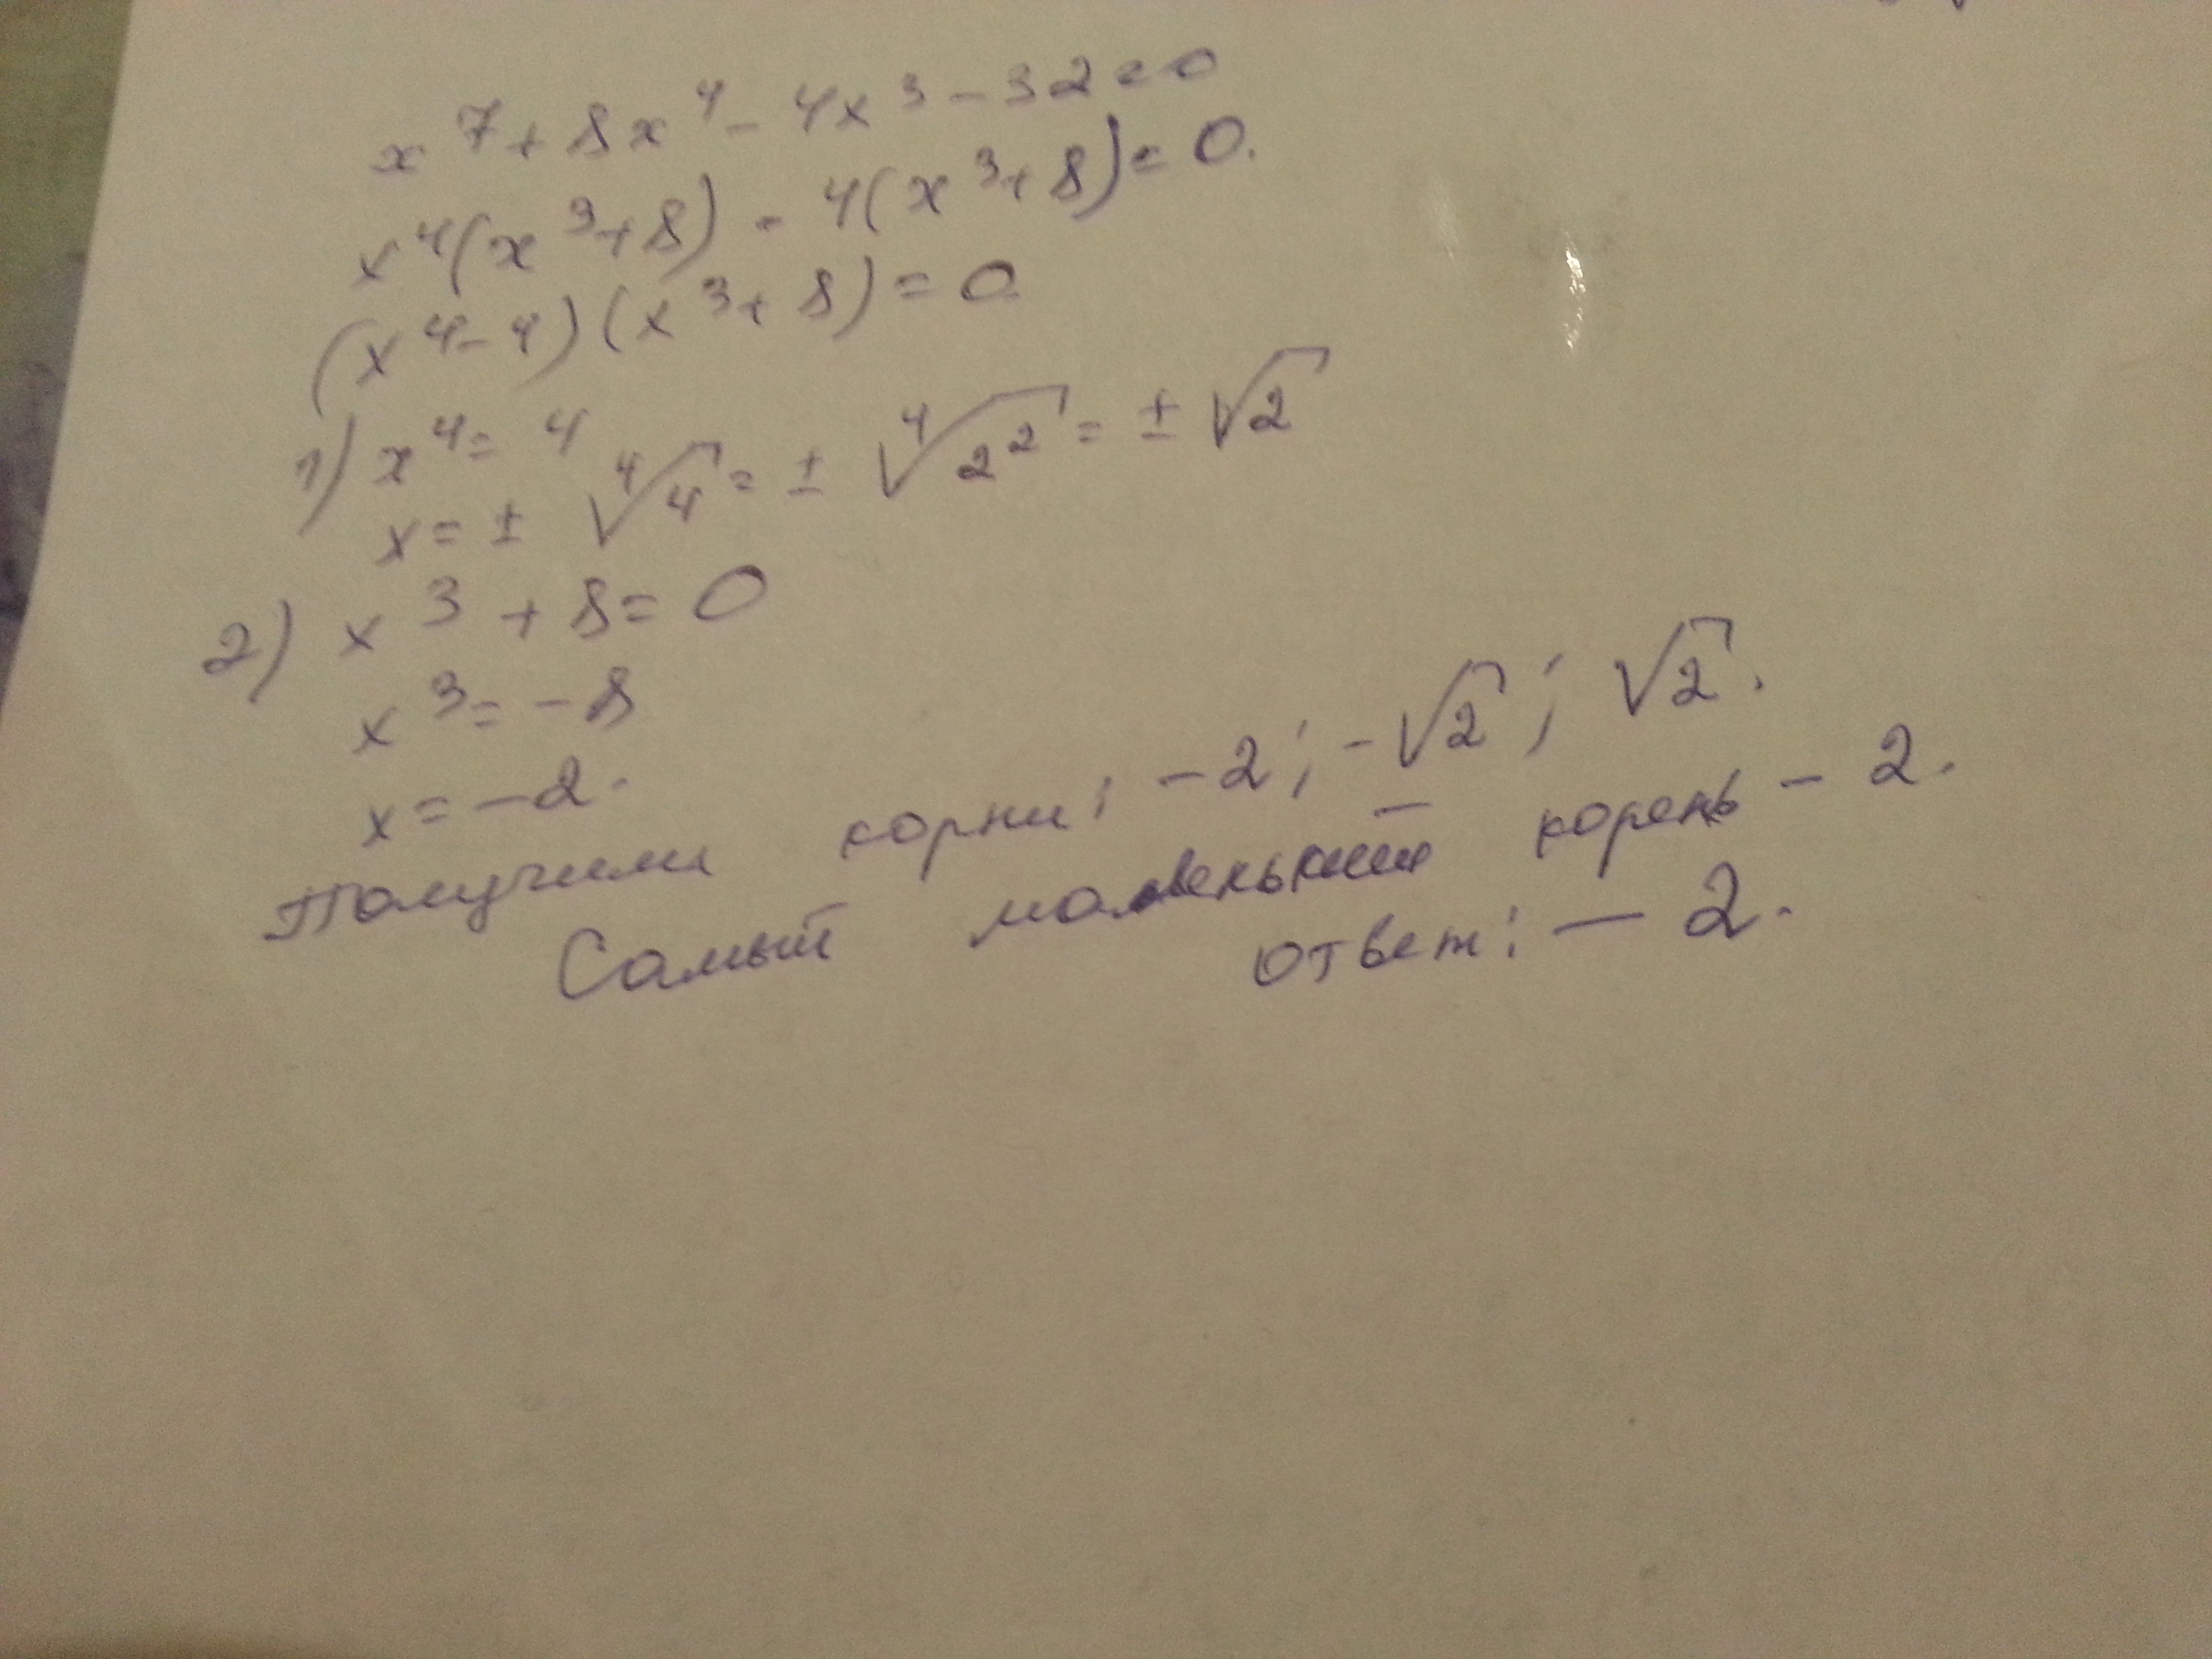 x⁷ + 8x⁴ - 4x³ - 32 = 0
x⁴(x³ + 8) - 4(x³ + 8) = 0.
(x⁴ - 4)(x³ + 8) = 0
1) x⁴ = 4
x = ± ⁴√4 = ± ⁴√2² = ± √2
2) x³ + 8 = 0
x³ = -8
x = -2.
Получили корни: -2; -√2; √2.
Самый маленький корень - 2.
Ответ: - 2.